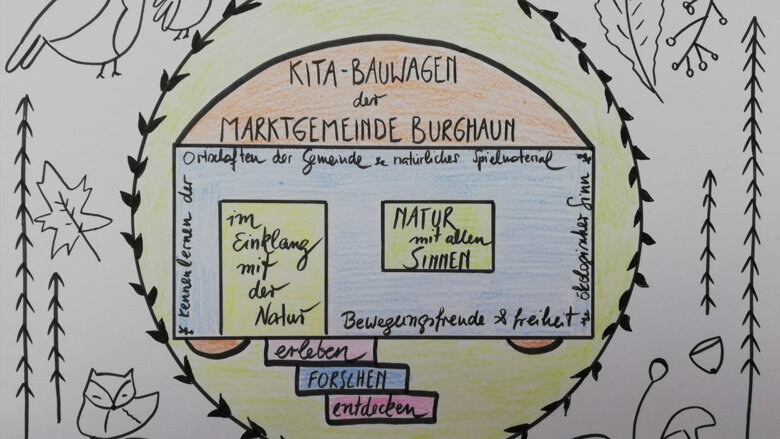 KITA-BAUWAGEN
der
MARKTGEMEINDE BURGHAUN
* Kennenlernen der
Ortschaften der Gemeinde * natürliches Spielmaterial *
ökologischer Sinn *
Bewegungsfreude & freiheit
im
Einklang
mit
der
Natur
NATUR
mit allen
SINNEN
erleben
FORSCHEN
entdecken